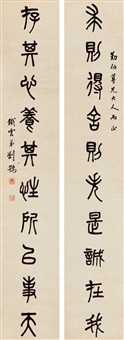 勤伯尊兄大人正
求則得舍則失是誠在我
存其心養其性所以事天
鐵雲弟劉鶚